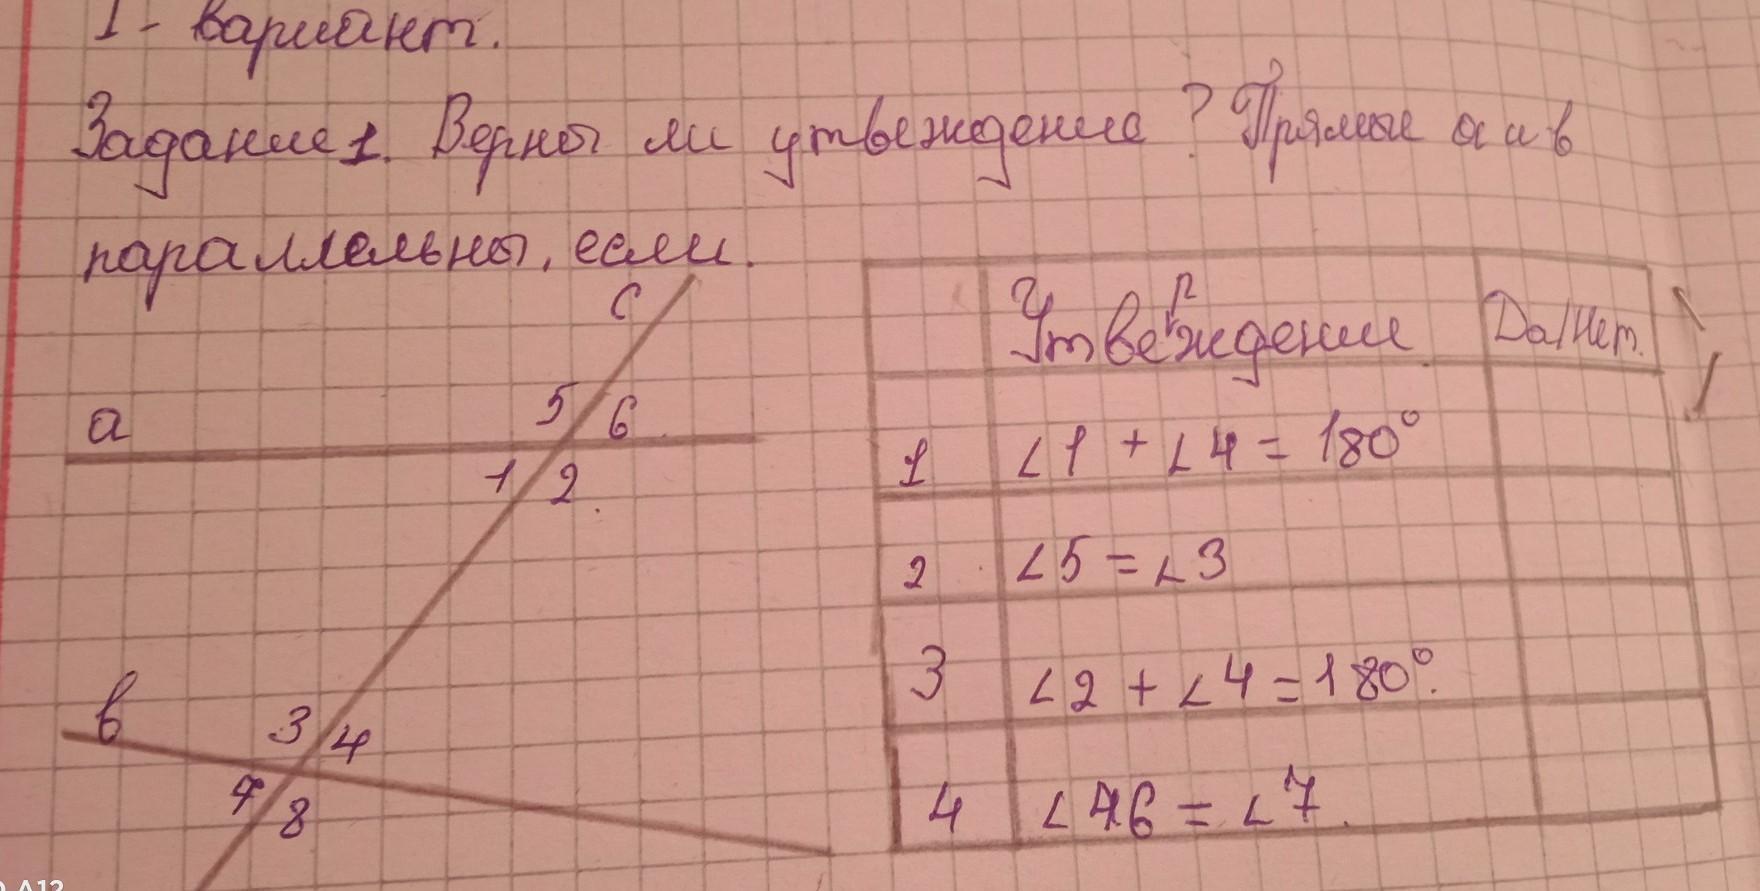 I - вариант.
Задание 1. Верны ли утвеждение? Прямые а и в
параллельны, если.
c
a
5
6
1
2
в
3
4
7
8
Утверждении Да/Нет.
1 ∠1 + ∠4 = 180°
2 ∠5 = ∠3
3 ∠2 + ∠4 = 180°.
4 ∠6 = ∠7.